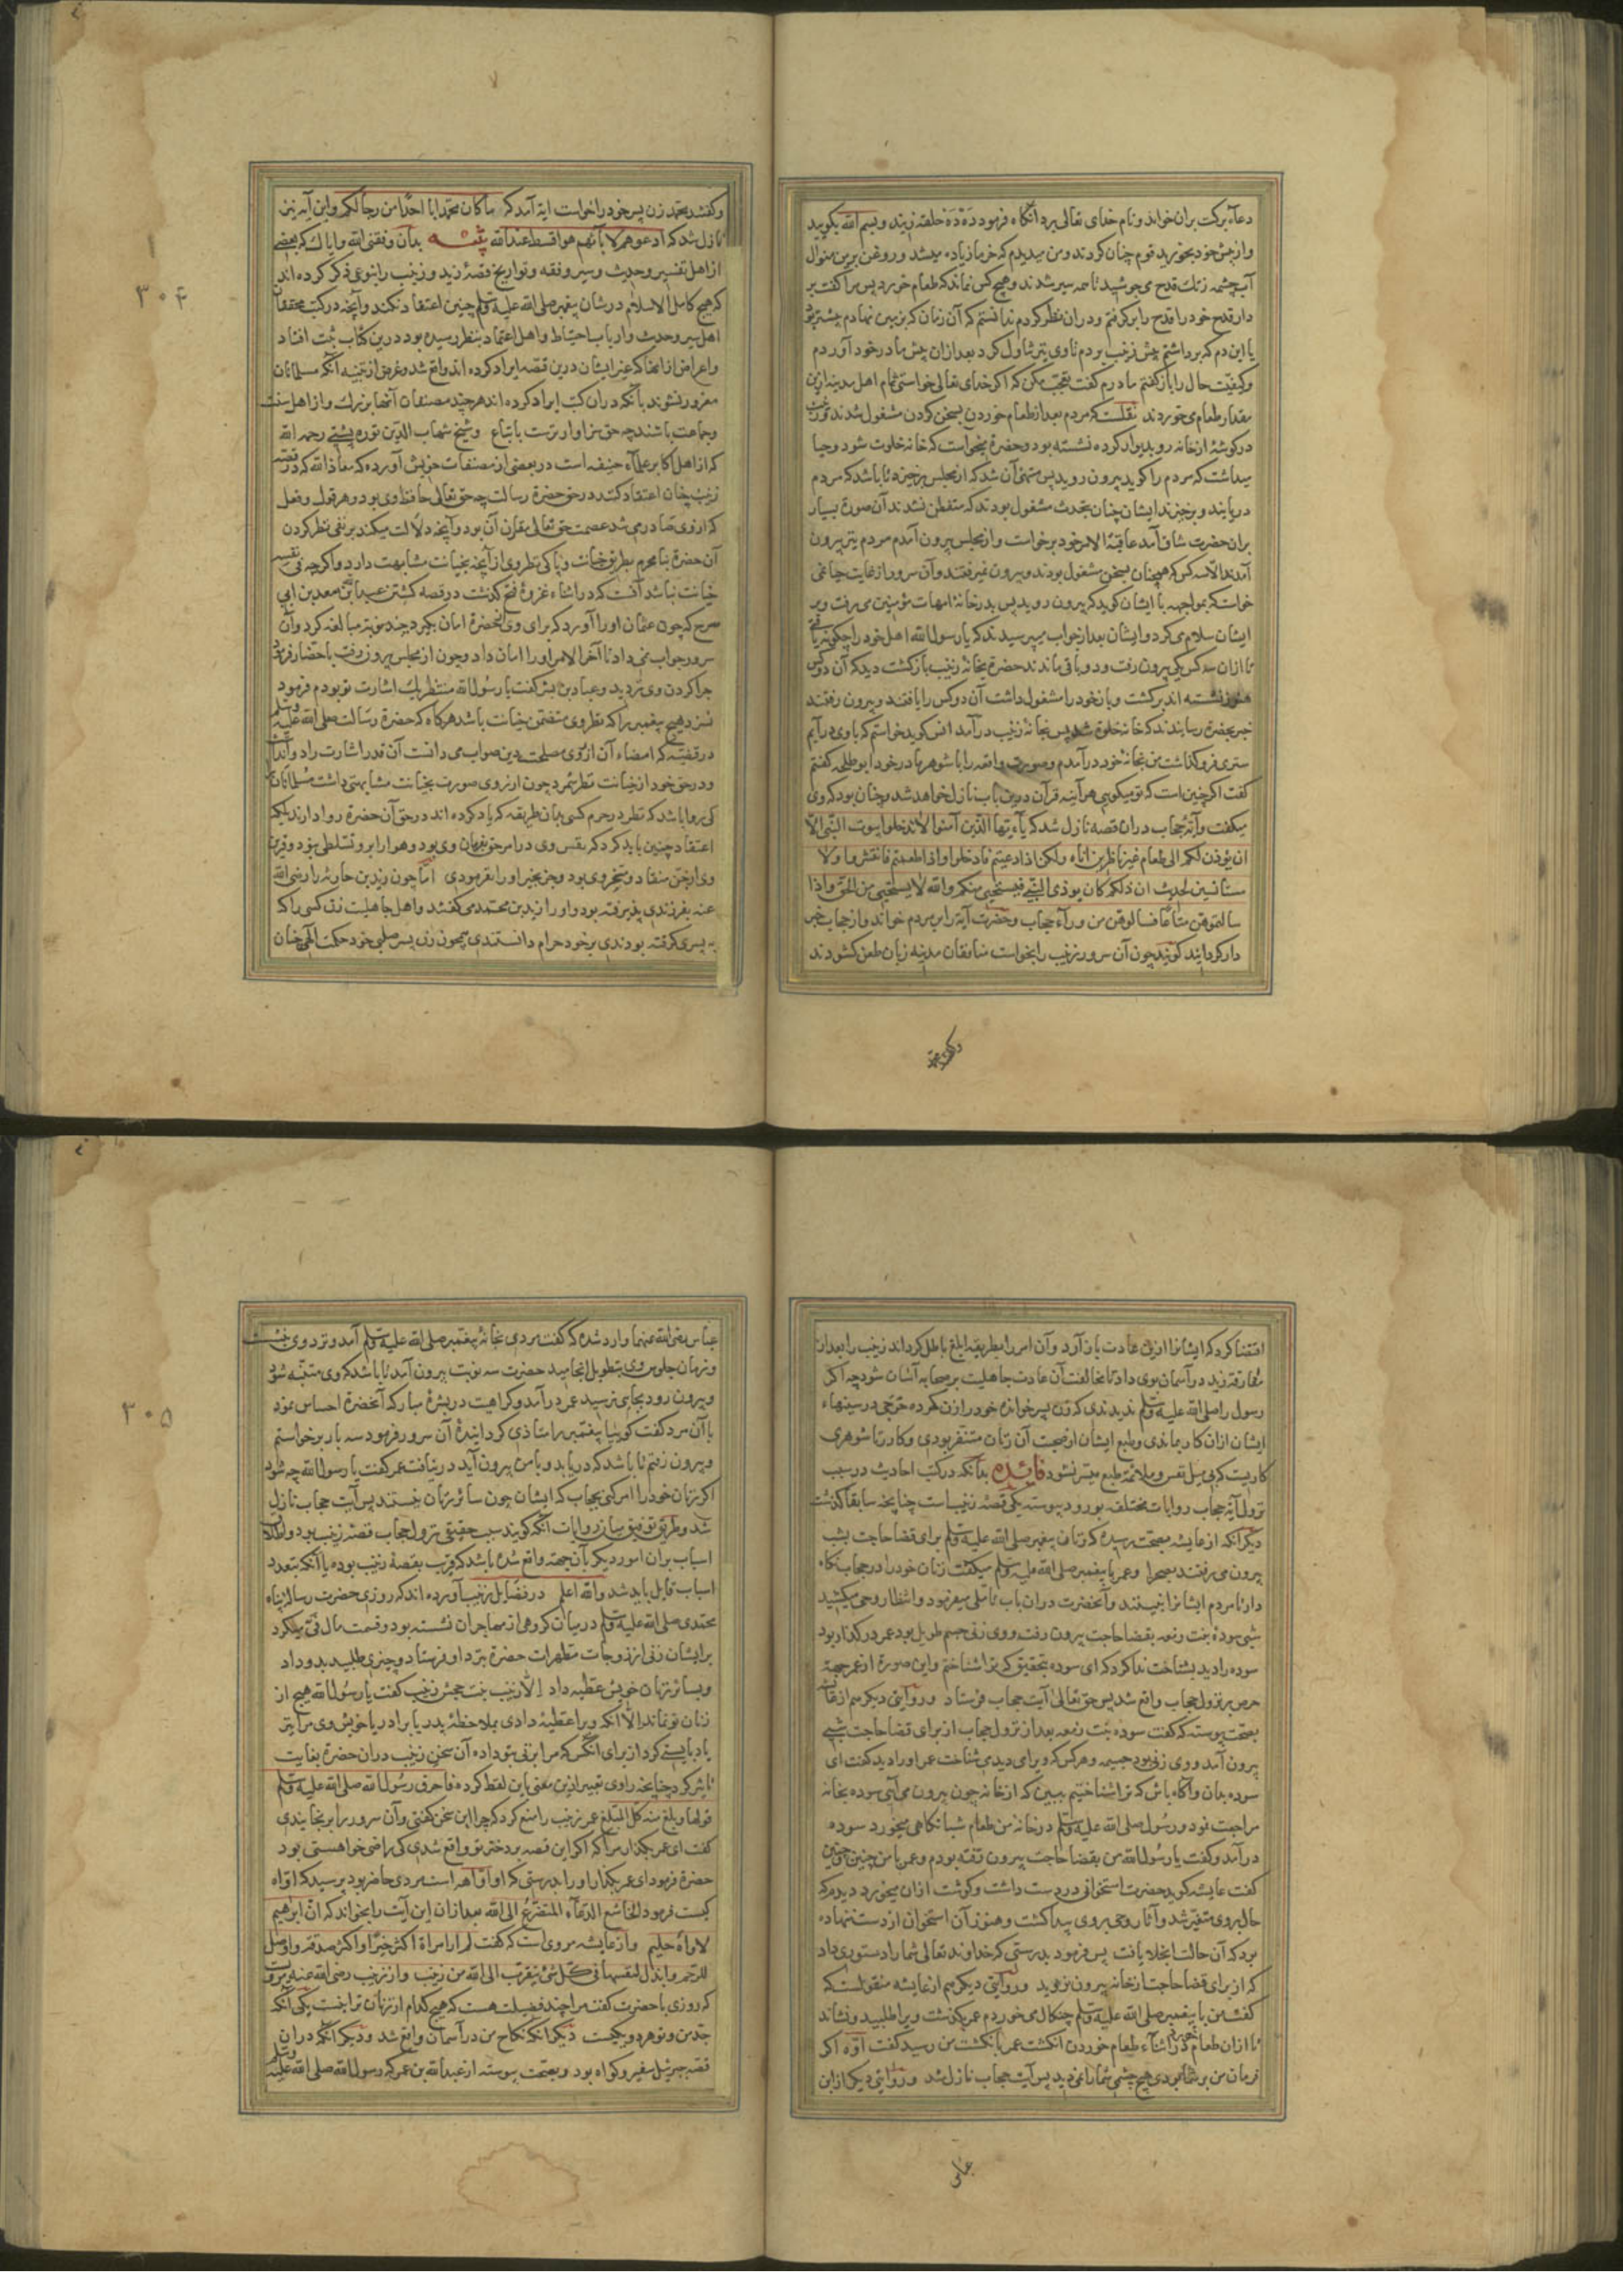 دعاء برکت بران خواند و نام خدای تعالی برد آنگاه فرمود ده ده حلقه زنید و بسم الله بگویید
و از پیش خود بخورید قوم چنان کردند و من میدیدم که خرما زیاده میشد و روغن برین منوال
آب چشمه زنك قدح می جوشید تا همه سیر شدند و هیچ کس نماند که طعام نخورد پس مرا گفت بر
دار قدح خود را قدح را برگرفتم و در ان نظر کردم ندانستم که آن زمان که بر زمین نهادم پیشتر بود
یا این دم که برداشتم پیش زینب بردم تا وی نیز تناول کرد بعد ازان پیش مادر خود آوردم
و کیفیت حال را باز گفتم مادرم گفت تعجب مکن که اگر خدای تعالی خواستی تمام اهل مدینه ازین
مقدار طعام می خوردند نقلست که مردم بعد از طعام خوردن بسخن کردن مشغول شدند و زینب
در گوشهٔ از خانه رو بدیوار کرده نشسته بود و حضرة میخواست که خانه خلوت شود و حیا
میداشت که مردم را گوید بیرون روید پس متهیّ آن شد که از مجلس برخیزد تا باشد که مردم
دریابند و برخیزند ایشان چنان بتحدث مشغول بودند که متفطن نشدند آن صورة بسیار
بران حضرت شاق آمد عاقبة الامر خود برخواست و از مجلس بیرون آمدم مردم نیز بیرون
آمدند الّا سه کس که همچنان بسخن مشغول بودند و بیرون نمیرفتند و آن سرور از غایت حیا نمی
خواست که بمواجهه با ایشان گوید که بیرون روید پس بدر خانهٔ امهات مؤمنین می رفت و بر
ایشان سلام می کرد و ایشان بعد از جواب میپرسیدند که یا رسول الله اهل خود را چگونه یافتی
تا ازان سه کس یکی بیرون رفت و دو باقی ماندند حضرة بخانهٔ زینب بازگشت دید که آن دو کس
هنوز نشسته اند برگشت و باز خود را مشغول داشت آن دو کس را یافتند و بیرون رفتند
خبر بحضرة رسانیدند که خانه خلوة شد پس بخانهٔ زینب درآمد انس گوید خواستم که با وی درآیم
ستری فرو گذاشت من بخانهٔ خود درآمدم و صورت واقعه را با شوهر مادر خود ابوطلحه گفتم
گفت اگر چنین است که تو میگویی هر آینه قرآن درین باب نازل خواهد شد و چنان بود که وی
میگفت و آیهٔ حجاب دران قصه نازل شد که یا ءیّها الّذین آمنوا لا تدخلوا بیوت النّبی الّا
ان یؤذن لکم الی طعام غیر ناظرین اناه ولکن اذا دعیتم فادخلوا و اذا طعمتم فانتشروا ولا
مستانسین لحدیث ان ذلکم کان یوذی النّبی فیستحیی منکم والله لا یستحیی من الحق و اذا
سالتموهنّ متاعًا فسالوهن من ورآء حجاب و حضرت آیة را بر مردم خواند و از حجاب خبر
دار گردانید گویند چون آن سرور زینب را بخواست منافقان مدینه زبان طعن گشودند
و گفتند محمد
و گفتند محمد زن پسر خود را خواست ایة آمد که ما کان محمّد ابا احدًا من رجالکم و این آیه نیز
نازل شد که ادعوهم لابآئهم هو اقسط عند الله تنبیه بدان وفقنی الله و ایاك که بعضی
از اهل تفسیر و حدیث و سیر و فقه و تواریخ قصهٔ زید و زینب را بنوعی ذکر کرده اند
که هیچ کامل الاسلام در شان پیغمبر صلی الله علیه وسلم چنین اعتقاد نکند و آنچه در کتب محققان
اهل سیر و حدیث و ارباب احتیاط و اهل اعتماد بنظر رسیده بود درین کتاب ثبت افتاد
و اعراض از انها که غیر ایشان درین قصه ایراد کرده اند واقع شد و غرض از تنبیه آنکه مسلمانان
مغرور نشوند بآنکه در ان کتب ایراد کرده اند هر چند مصنفان آنها بزرك و از اهل سنت
و جماعت باشند چه حق سزاوارترست باتباع و شیخ شهاب الدّین توره پشتی رحمه الله
که از اهل اکابر علمآء حنیفه است در بعضی از مصنفات خویش آورده که معاذ الله که در قصه
زینب چنان اعتقاد کنند در حق حضرة رسالت چه حق تعالی حافظ وی بود و هر قول و فعل
که ازوی صادر می شد عصمت حق تعالی مقارن آن بود و آنچه دلالت میکند بر نفی نظر کردن
آن حضرة بنا محرم بطریق خیانت و پاکی نظر وی از آنچه بخیانت مشابهت دارد و اگرچه فی نفسه
خیانت نباشد آنست که در اثناء غزوهٔ فتح گذشت در قصه کشتن عبد الله بن سعد بن ابی
سرح که چون عثمان او را آورد که برای وی از انحضرة امان بگیرد چند نوبة مبالغه کرد و آن
سرور جواب نمی داد تا آخر الامر او را امان داد و چون از مجلس بیرون رفت با حضار فرمود
چرا گردن وی نزدید و عباد بن بشر گفت یا رسول الله منتظر یك اشارت تو بودم فرمود
نسزد هیچ پیغمبر را که نظر وی متضمن خیانت باشد هرگاه که حضرة رسالت صلی الله علیه وسلم
در قضیهٔ که امضاء آن از روی مصلحت دین صواب می دانست آن قدر اشارت را
و در حق خود از خیانت نظر شمرد چون از روی صورت بخیانت مشابهتی داشت مسلمانان
کی روا باشد که نظر در حرم کسی بدان طریقه که یاد کرده اند در حق آن حضرة روا دارند بلکه
اعتقاد چنین باید کرد که نفس وی در امر حق بفرمان وی بود و هوا را برو تسلطی نبود و قرین
وی از جن منقاد و مسخر وی بود و جز بخیر او را نفرمودی امّا چون زید بن حارثه را رضی الله
عنه بفرزندی پذیرفته بود و او را زید بن محمد می گفتند و اهل جاهلیت زن کسی را که
به پسری گرفته بودندی بر خود حرام دانستندی همچون زن پسر صلبی خود حکمت الهی چنان
۳۰۴
اقتضا کرد که ایشانرا ازین عادت باز آرد و آن امر را بطریقهٔ ابلغ باطل گرداند زینب را بعد از
مفارقة زید در آسمان بوی داد تا مخالفت آن عادت جاهلیت بر صحابه آسان شود چه اگر
رسول را صلی الله علیه وسلم ندیدندی که زن پسر خوانده خود را زن کرده حرجی در سینهاء
ایشان ازان کار بماندی و طبع ایشان از صحبت آن زنان متنفر بودی و کار زنا شوهری
کاریست که بی میل نفس و ملائمة طبع میسر نشود فائده بدانکه در کتب احادیث در سبب
نزول آیة حجاب روایات مختلفه بورود پیوسته یکی قصهٔ زینب است چنانچه سابقا گذشت
دیگر آنکه از عایشه بصحت رسیده که زنان پیغمبر صلی الله علیه وسلم برای قضا حاجت بشب
بیرون می رفتند بصحرا و عمر با پیغمبر صلی الله علیه وسلم میگفت زنان خود را در حجاب نگاه
دار تا مردم ایشانرا نبینند و آنحضرت دران باب تاملی میفرمود و انتظار وحی میکشید
شبی سوده بنت زمعه بقضا حاجت بیرون رفت و وی زنی جسم طویل بود عمر در گذار بود
سوده را دید بشناخت ندا کرد که ای سوده بتحقیق که ترا شناختم و این صورة از عمر جهة
حرص بر نزول حجاب واقع شد پس حق تعالی آیت حجاب فرستاد و روایتی دیگر هم از عایشه
بصحت پیوسته که گفت سوده بنت زمعه بعد از نزول حجاب از برای قضا حاجت شبی
بیرون آمد و وی زنی بود جسیمه و هر کس که ویرا می دیدی شناخت عمر او را دید گفت ای
سوده بدان و آگاه باش که ترا شناختیم ببین که از خانه چون بیرون می آیی سوده بخانه
مراجعت نمود و رسول صلی الله علیه وسلم در خانه من طعام شبانگاهی میخورد سوده
درآمد و گفت یا رسول الله من بقضا حاجت بیرون رفته بودم و عمر با من چنین و چنین
گفت عایشه گوید حضرت استخوانی در دست داشت و گوشت ازان میخورد دیدم که
حال بروی متغیر شد و آثار وحی بروی پیدا گشت و هنوز آن استخوان از دست ننهاده
بود که آن حالت انجلا یافت پس فرمود بدرستی که خداوند تعالی شما را دستوری داد
که از برای قضا حاجت از خانه بیرون روید و روایتی دیگر هم از عایشه منقولست که
گفت من با پیغمبر صلی الله علیه وسلم چنکال می خوردم عمر بگذشت ویرا طلبید و نشاند
تا ازان طعام خورد در اثناء طعام خوردن انگشت عمر بانگشت من رسید گفت اوّه اگر
فرمان من بر شما بودی هیچ چشمی شما را نمی دید پس آیت حجاب نازل شد و روایتی دیگر از ابن
عباس
عباس رضی الله عنهما وارد شده که گفت مردی بخانهٔ پیغمبر صلی الله علیه وسلم آمد و نزد وی نشست
و زمان جلوس وی بتطویل انجامید حضرت سه نوبت بیرون آمد تا باشد که وی متنبّه شود
و بیرون رود بجایی نرسید عمر درآمد و کراهیت در بشرهٔ مبارکه آنحضرة احساس نمود
با آن مرد گفت گوییا پیغمبر را متاذی گردانیدهٔ آن سرور فرمود سه بار برخواستم
و بیرون رفتم تا باشد که دریابد و با من بیرون آید در نیافت عمر گفت یا رسول الله چه شود
اگر زنان خود را امر کنی بحجاب که ایشان چون سائر زنان نیستند پس آیت حجاب نازل
شد و طریق توفیق میان روایات آنکه گویند سبب حقیقی نزول حجاب قصهٔ زینب بود و اطلاق
اسباب بران امور دیگر بآن جهة واقع شده باشد که قریب بقصهٔ زینب بوده یا آنکه بتعدد
اسباب قایل باید شد والله اعلم در فضایل زینب آورده اند که روزی حضرت رسالة پناه
محمّدی صلی الله علیه وسلم درمیان گروهی از مهاجران نشسته بود و قسمت مال فیّ میکرد
برایشان زنی از زوجات مطهرات حضرة نزد او فرستاد و چیزی طلبید بدو داد
و بسائر زنان خویش عطیه داد الا زینب بنت جحش زینب گفت یا رسول الله هیچ از
زنان تو نماند الا آنکه ویرا عطیهٔ دادی بملاحظهٔ پدر یا برادر یا خویش وی مرا نیز
یاد بایستی کرد از برای آنکس که مرا بزنی بتو داده آن سخن زینب دران حضرة بغایت
تاثیر کرد چنانچه راوی تعبیر ازین معنی باین لفظ کرده فاحرق رسول الله صلی الله علیه وسلم
قولها و بلغ منه کل المبلغ عمر زینب را منع کرد که چرا این سخن گفتی و آن سرور را برنجانیدی
گفت ای عمر بگذار مرا که اگر این قصه بر دختر تو واقع شدی کی راضی خواهستی بود
حضرة فرمود ای عمر بگذار او را بدرستی که او اوّاهه است مردی حاضر بود پرسید که اوّاه
کیست فرمود الخاشع الدعّآء المتضرّع الی الله بعد ازان این آیت را بخواند که انّ ابرٰهیم
لاوّاه حلیم و از عایشه مروی است که گفت لم ار امراة اکثر خیرًا و اکثر صدقة و اوصل
للرّحم و ابذل لنفسها فی کل شئ یتقرب الی الله من زینب و از زینب رضی الله عنها مرویست
که روزی با حضرت گفت مرا چند فضیلت هست که هیچ کدام از زنان ترا نیست یکی آنکه
جدّ من و تو هر دو یکیست دیگر آنکه نکاح من در آسمان واقع شد و دیگر آنکه دران
قصه جبرئیل سفیر و گواه بود و بصحت پیوسته از عبد الله بن عمر که رسول الله صلی الله علیه وسلم
۳۰۵